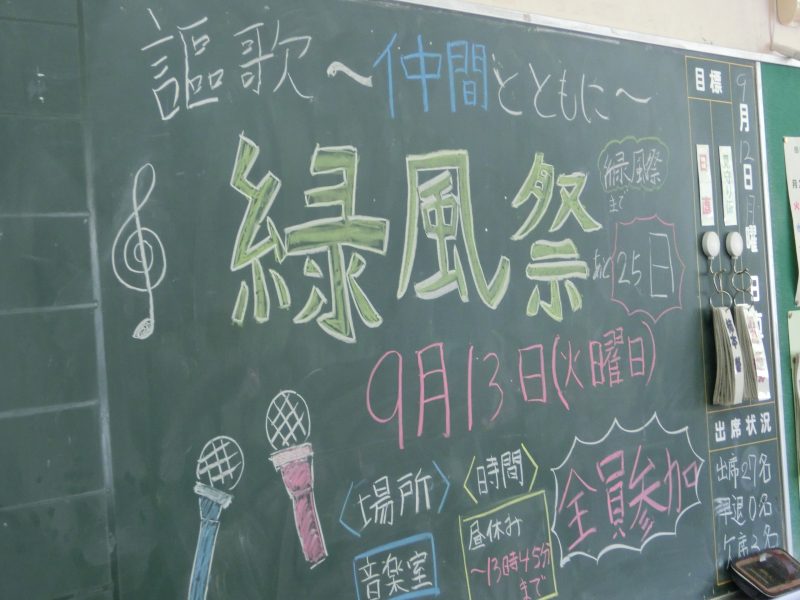 謳歌～仲間とともに～
緑風祭
緑風祭
まで
あと
25日
9月13日(火曜日)
〈場所〉
音楽室
〈時間〉
昼休み
～13時45分
まで
全員参加
目標
9月12日月曜日
日直
出席状況
出席27名
早退0名
欠席3名